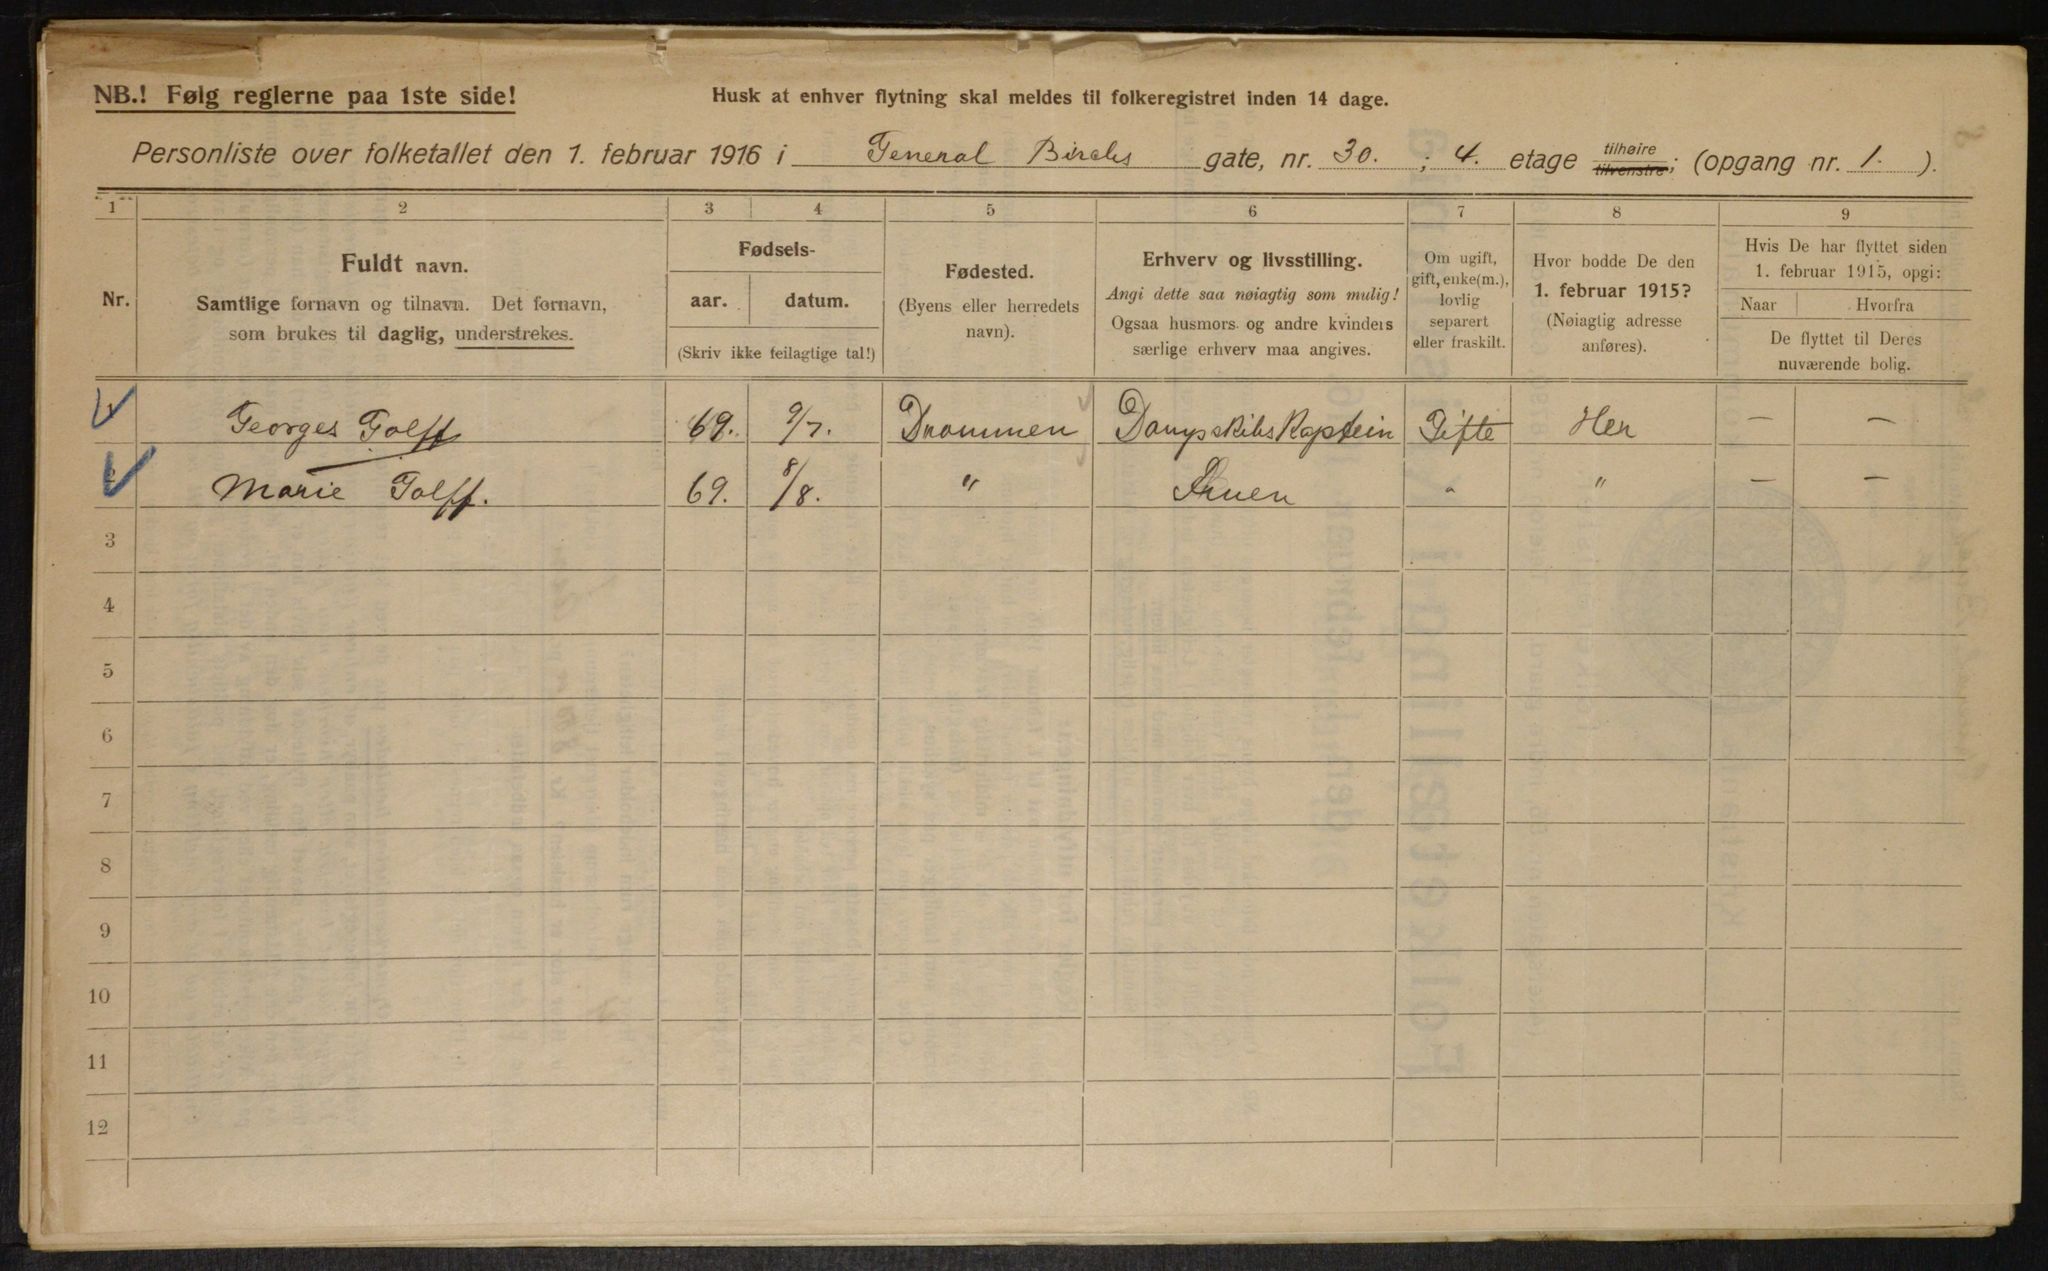 NB.! Følg reglerne paa 1ste side!
Husk at enhver flytning skal meldes til folkeregistret inden 14 dage.
Personliste over folketallet den 1. februar 1916 i General Birchs gate, nr. 30. ; 4. etage tilhøire tilvenstre; (opgang nr. 1. ).
1 2 3 4 5 6 7 8 9
Nr.
Fuldt navn.
Samtlige fornavn og tilnavn. Det fornavn,
som brukes til daglig, understrekes.
Fødsels-
aar. datum.
(Skriv ikke feilagtige tal!)
Fødested.
(Byens eller herredets
navn).
Erhverv og livsstilling.
Angi dette saa nøiagtig som mulig!
Ogsaa husmors og andre kvinders
særlige erhverv maa angives.
Om ugift,
gift, enke(m.),
lovlig
separert
eller fraskilt.
Hvor bodde De den
1. februar 1915?
(Nøiagtig adresse
anføres).
Hvis De har flyttet siden
1. februar 1915, opgi:
Naar Hvorfra
De flyttet til Deres
nuværende bolig.
1 Georges Golff 69. 9/7. Drammen Dampskibs Kaptein Gifte Her — —
2 Marie Golff. 69. 8/8. " Fruen " " — —
3
4
5
6
7
8
9
10
11
12